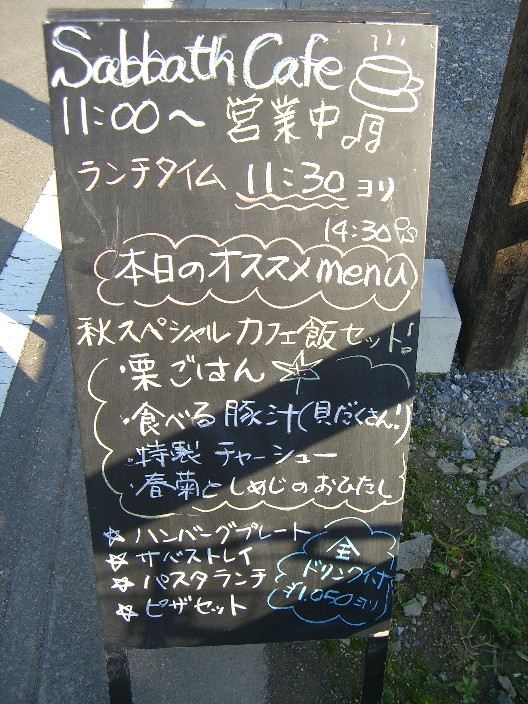 Sabbath Cafe
11:00～ 営業中
ランチタイム 11:30 ヨリ
14:30
本日のオススメmenu
秋スペシャルカフェ飯セット!
・栗ごはん
・食べる豚汁(具だくさん!)
・特製チャーシュー
・春菊としめじのおひたし
☆ ハンバーグプレート
☆ サバストレイ
☆ パスタランチ
☆ ピザセット
全
ドリンク付
¥1,050ヨリ